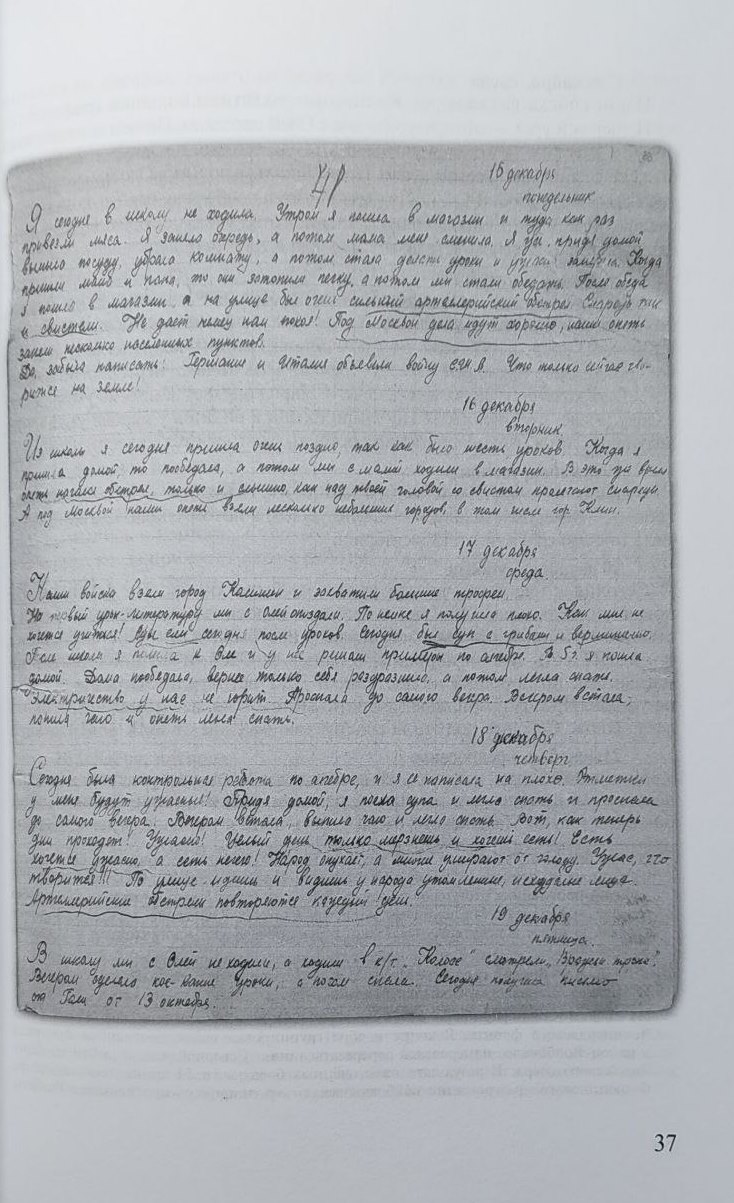 15 декабря
понедельник
Я сегодня в школу не ходила. Утром я пошла в магазин и туда как раз
привезли мясо. Я заняла очередь, а потом мама меня сменила. Я же, придя домой,
вымыла посуду, убрала комнату, а потом стала делать уроки и Когда
пришли мама и папа, то они затопили печку, а потом мы стали обедать. После обеда
я пошла в магазин, а на улице был очень сильный артиллерийский обстрел. Снаряды так
и свистели. Не дает немец нам покоя! Под Москвой дела идут хорошо, наши опять
заняли несколько населенных пунктов.
Да, забыла написать! Германия и Италия объявили войну С.Ш.А. Что только сейчас тво-
рится на земле!
16 декабря
вторник
Из школы я сегодня пришла очень поздно, так как было шесть уроков. Когда я
пришла домой, то пообедала, а потом мы с мамой ходили в магазин. В это же время
опять начался обстрел, только и слышно, как над твоей головой со свистом пролетают снаряды.
А под Москвой наши опять взяли несколько небольших городов, в том числе гор. Клин.
17 декабря
среда.
Наши войска взяли город Калинин и захватили большие трофеи.
На первый урок-литературу мы с Олей опоздали. По немке я получила плохо. Как мне не
хочется учиться! Суп ели сегодня после уроков. Сегодня был суп с грибами и вермишелью.
После школы я пошла к Оле и у неё решали примеры по алгебре. В 5ч. я пошла
домой. Дома пообедала, вернее только себя раздразнила, а потом легла спать.
Электричество у нас не горит. Проспала до самого вечера. Вечером встала,
попила чаю и опять легла спать.
18 декабря
четверг
Сегодня была контрольная работа по алгебре, и я её написала на плохо. Отметки
у меня будут ужасные! Придя домой, я поела супа и легла спать и проспала
до самого вечера. Вечером встала, выпила чаю и легла спать. Вот, как теперь
дни проходят! Ужасно! Целый день только мерзнешь и хочешь есть! Есть
хочется ужасно, а есть нечего! Народ опухает, а многие умирают от голоду. Ужас, что
творится!!! По улице идешь и видишь у народа утомленные, исхудалые лица.
Артиллерийские обстрелы повторяются каждый день.
19 декабря
пятница.
В школу мы с Олей не ходили, а ходили в к/т „Колосс" смотрели
Вечером сделала кое-какие уроки, а потом спала. Сегодня получила письмо
от Гали от 13 октября.
37